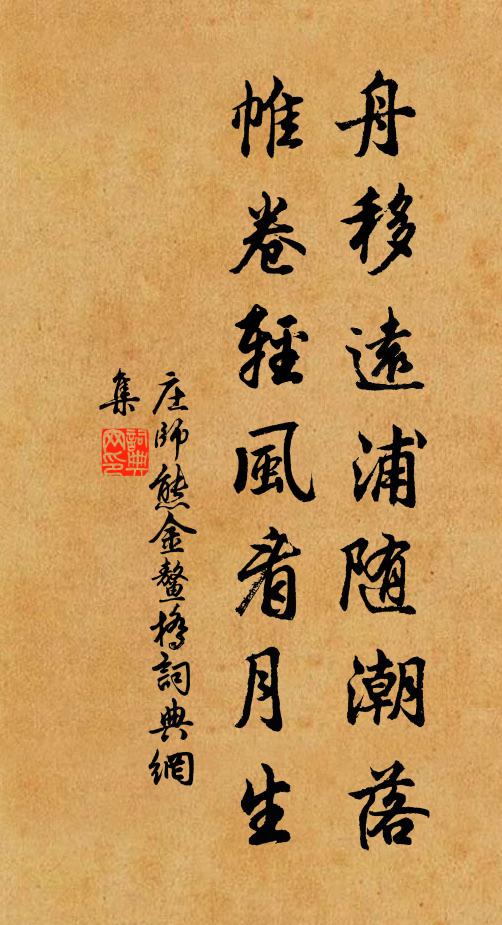 舟移遠浦随潮落
帷卷輕風看月生
庄師熊金鼇橋詞典網
集
詞典
网印